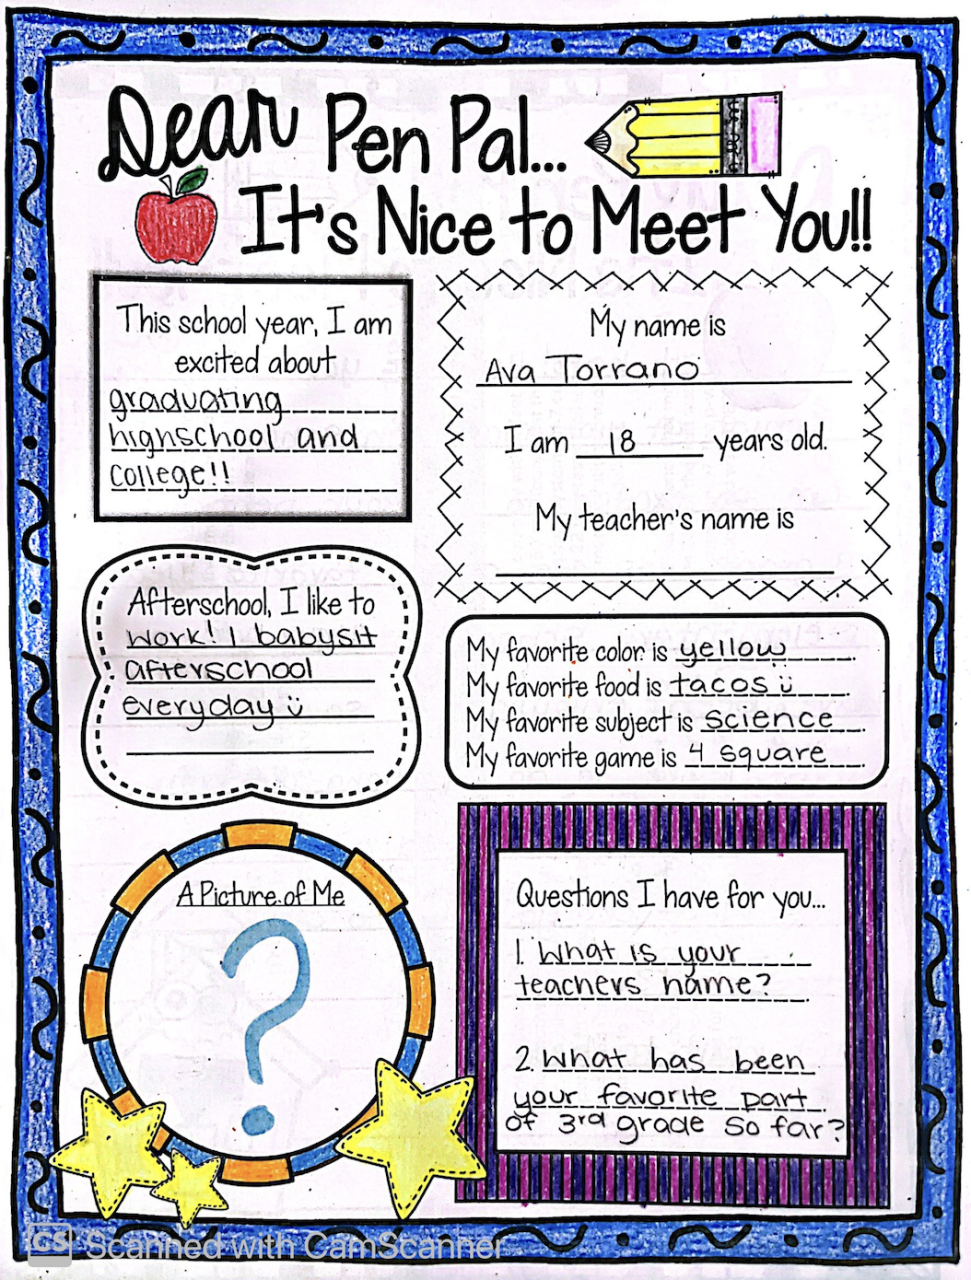 Dear Pen Pal...
It's Nice to Meet You!!
This school year, I am
excited about
graduating
highschool and
college!!
My name is
Ava Torrano
I am 18 years old.
My teacher's name is
Afterschool, I like to
work! I babysit
afterschool
everyday ü
My favorite color is yellow.
My favorite food is tacos ü.
My favorite subject is science.
My favorite game is 4 square.
A Picture of Me
?
Questions I have for you...
1. What is your
teachers name?
2. What has been
your favorite part
of 3rd grade so far?
CS Scanned with CamScanner